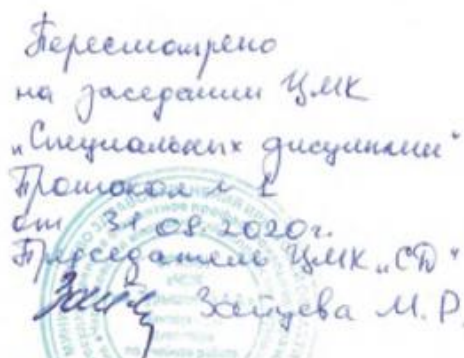 Пересмотрено
на заседании ЦМК
„Специальных дисциплин“
Протокол № 1
от 31.08.2020г.
Председатель ЦМК „СД“
Зайцева М.Р.